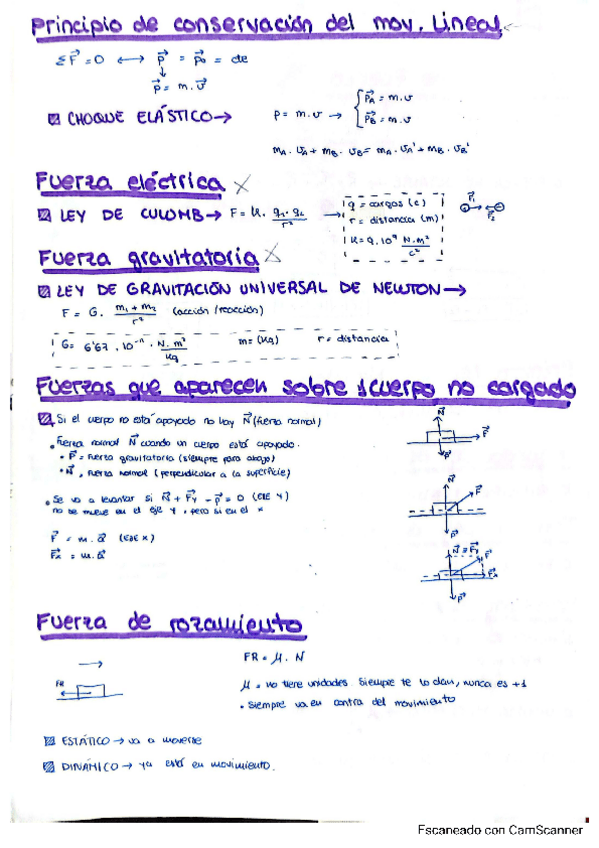 Principio de conservación del mov. Lineal
ΣF⃗=0 ⟷ p⃗ = p⃗₀ = cte
↓
p⃗ = m.v⃗
CHOQUE ELÁSTICO→ p = m.v → { p⃗A = m.v
p⃗B = m.v
mA.vA + mB.vB = mA.vA' + mB.vB'
Fuerza eléctrica
LEY DE CULOMB→ F = K. q₁.q₂/r² → q = cargas (c)
r = distancia (m)
K = 9.10⁹ N.m²/c²
F⃗₁
F⃗₂
Fuerza gravitatoria
LEY DE GRAVITACIÓN UNIVERSAL DE NEWTON→
F = G. m₁+m₂/r² (acción/reacción)
G = 6'67.10⁻¹¹. N.m²/Kg m = (Kg) r = distancia
Fuerzas que aparecen sobre 1 cuerpo no cargado
Si el cuerpo no está apoyado no hay N⃗ (fuerza normal)
• Fuerza normal N⃗ cuando un cuerpo está apoyado.
• P⃗ = fuerza gravitatoria (siempre para abajo)
• N⃗, fuerza normal (perpendicular a la superficie)
N⃗
F⃗
P⃗
• Se va a levantar si N⃗ + F⃗y - P⃗ = 0 (EJE Y)
no se mueve en el eje y, pero si en el x
N⃗
F⃗
P⃗
F⃗ = m.a⃗ (EJE X)
F⃗x = m.a⃗
N⃗ = F⃗y
F⃗
F⃗x
P⃗
Fuerza de rozamiento
FR = μ.N
FR
μ = no tiene unidades. Siempre te lo dan, nunca es +1
• Siempre va en contra del movimiento
ESTÁTICO → va a moverse
DINÁMICO → ya está en movimiento.
Escaneado con CamScanner